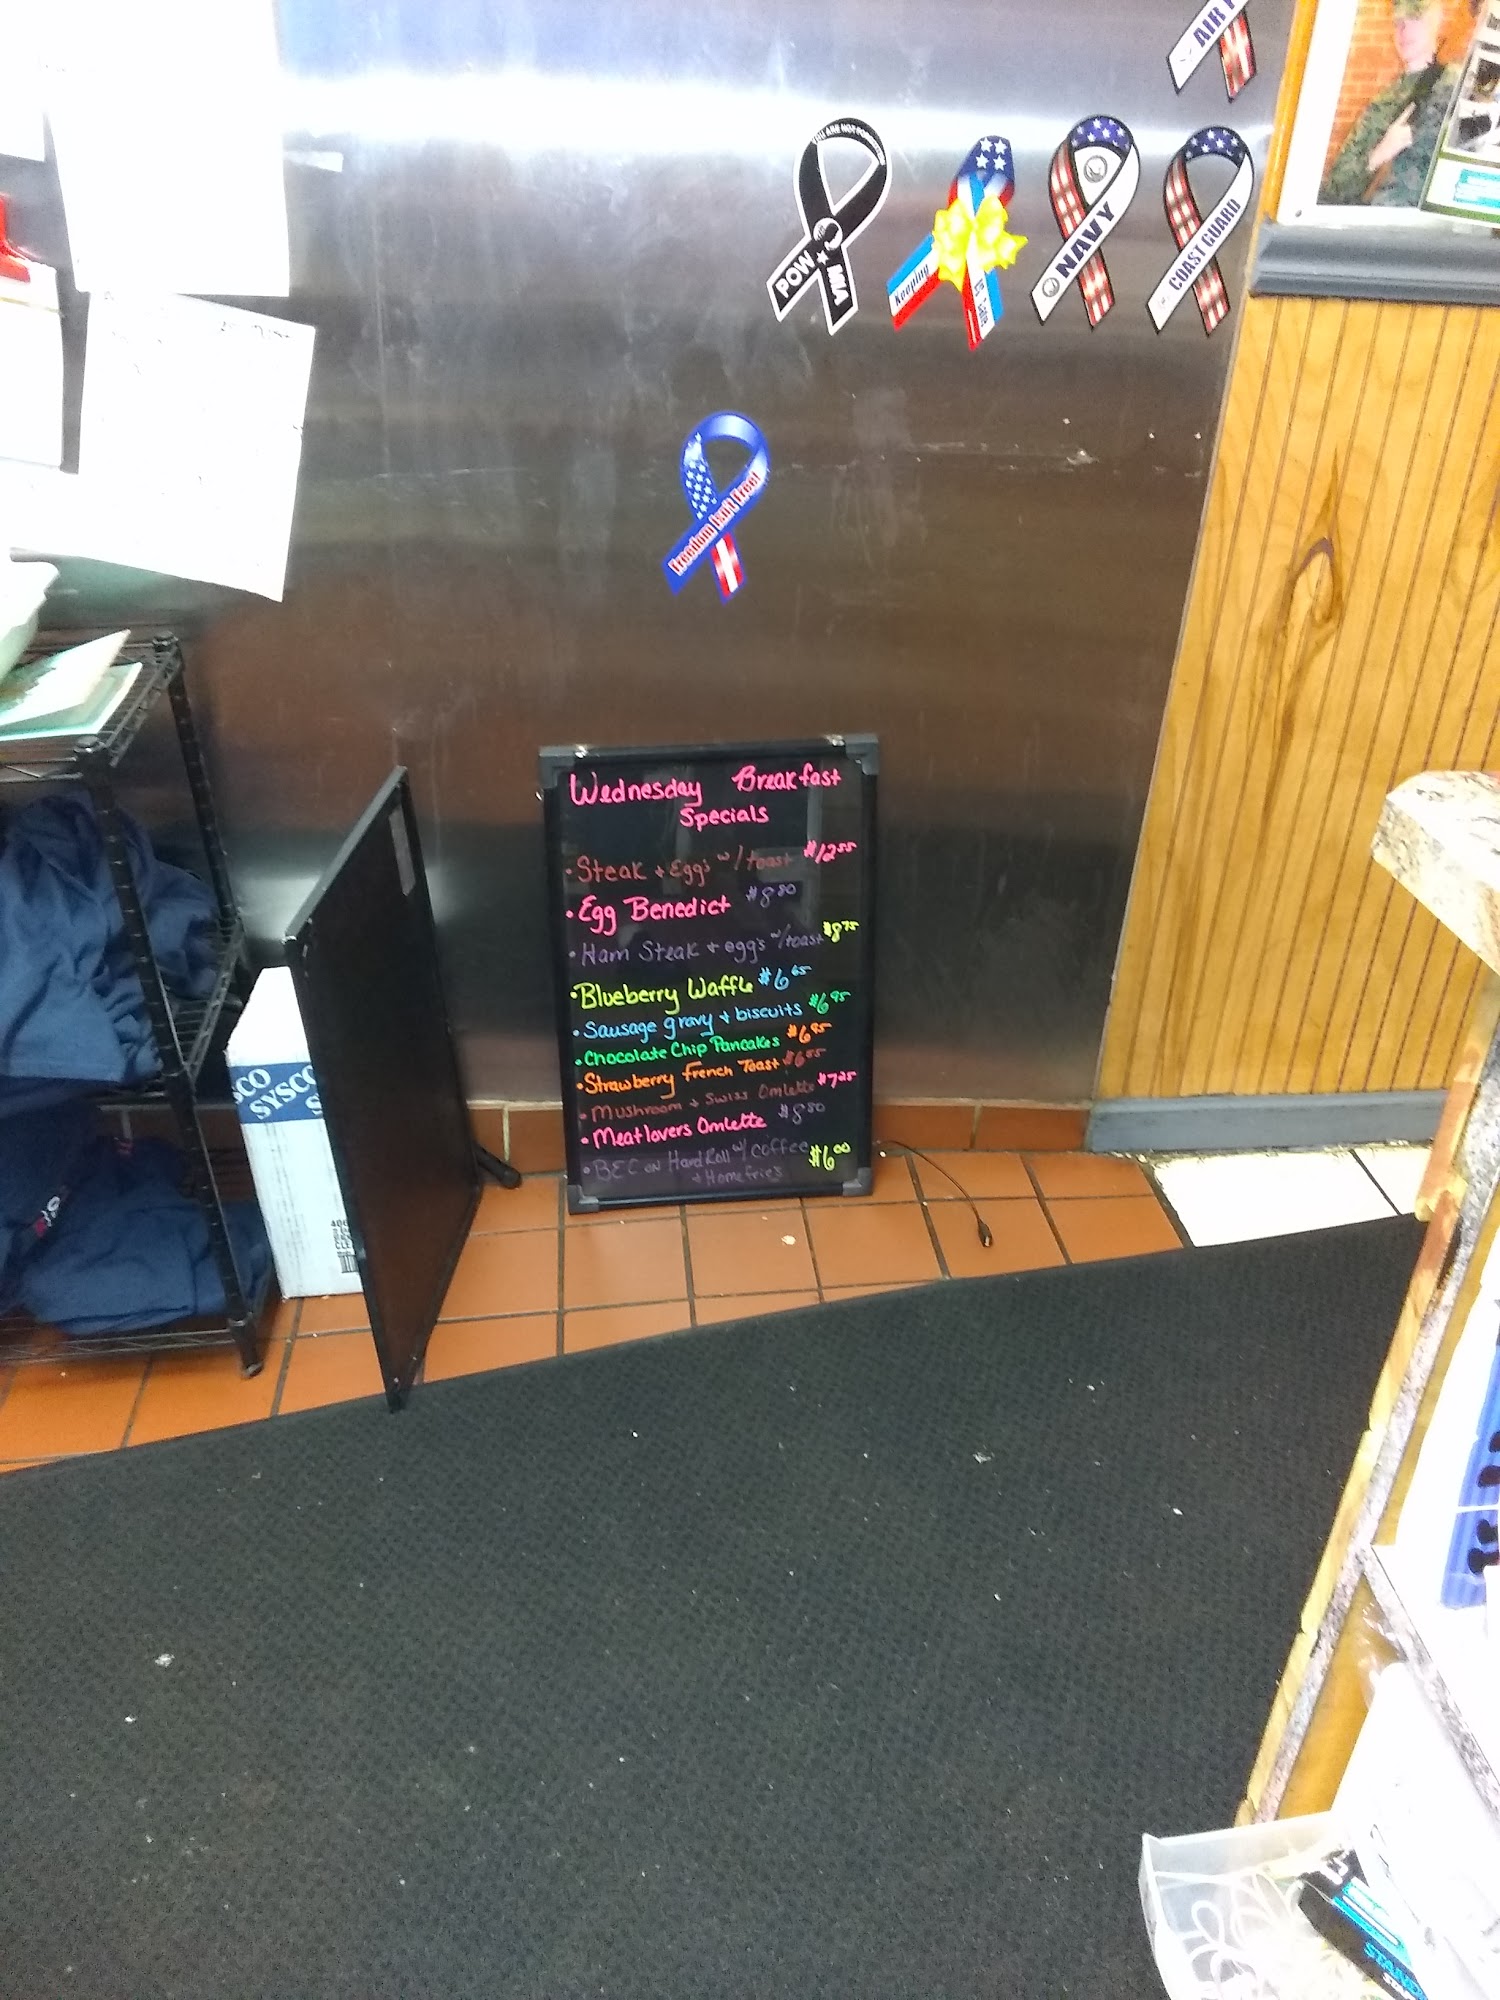 AIR
YOU ARE NOT FORGOTTEN
POW ★ MIA
Keeping
NAVY
COAST GUARD
Freedom Isn't Free!
Wednesday Breakfast
Specials
• Steak + Egg's w/ toast $12.55
• Egg Benedict $8.80
• Ham Steak + egg's w/toast $8.75
• Blueberry Waffle $6.65
• Sausage gravy + biscuits $6.95
• Chocolate Chip Pancakes $6.95
• Strawberry French Toast $6.55
• Mushroom + Swiss Omlette $7.25
• Meatlovers Omlette $8.50
• BEC on Hard Roll w/ coffee
+ Homefries $6.00
SCO
SYSCO